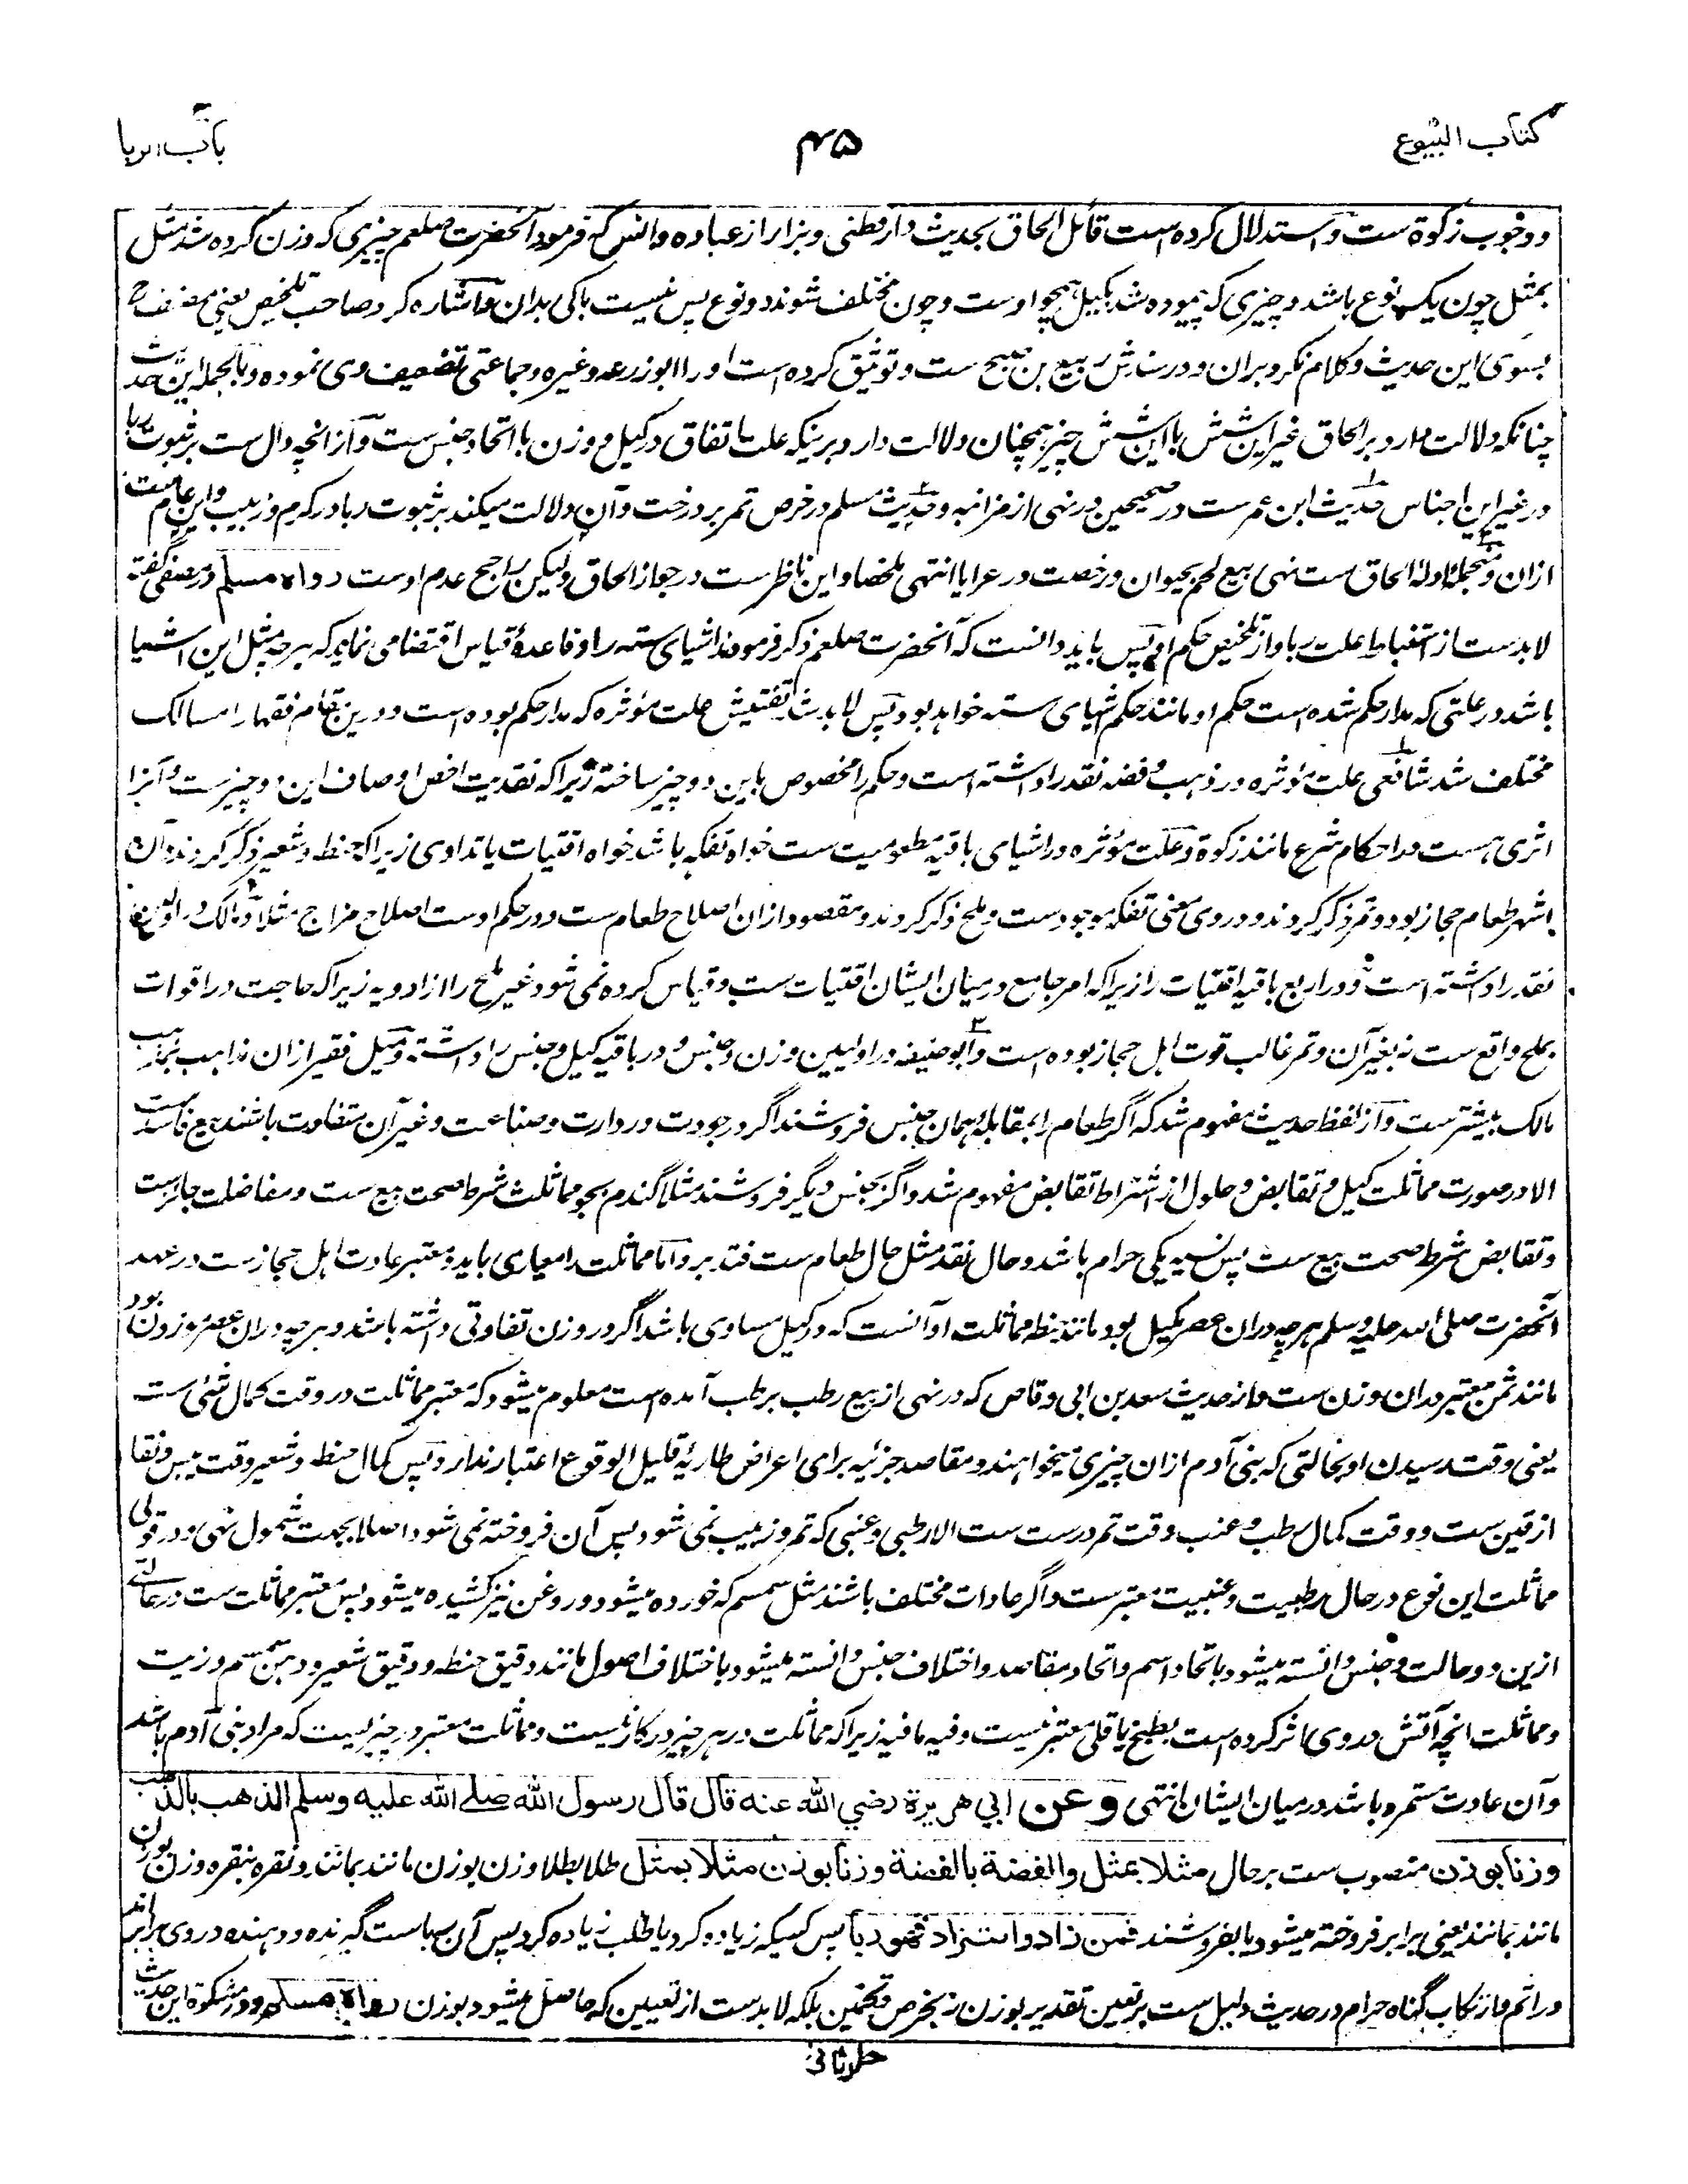 کتاب البیوع
۴۵
باب الربا
و وجوب زکوة ست و استدلال کرده است قائل الحاق بحدیث دارقطنی و بزار از عباده و انس که فرمود آنحضرت صلعم چیزی که وزن کرده شد مثل
بمثل چون یک نوع باشد و چیزی که پیموده شد بکیل همچو اوست و چون مختلف شوند دو نوع پس نیست باکی بدان و اشاره کرد صاحب تلخیص یعنی
بسوی این حدیث و کلام نکرد بران و در سندش ربیع بن صبیح ست و توثیق کرده است او را ابوزرعه و غیره و جماعتی تضعیف وی نموده و بالجمله این حدیث
چنانکه دلالت دارد بر الحاق غیر این شش با این شش چیز همچنان دلالت دارد برینکه علت اتفاق در کیل و وزن با اتحاد جنس ست و از انچه دال ست بر ثبوت ربا
در غیر این اجناس حدیث ابن عمرست در صحیحین در نهی از مزابنه و حدیث مسلم در خرص تمر بر درخت و آن دلالت میکند بر ثبوت ربا در کرم و زبیب و این عام ست
ازان و منجمله ادلۀ الحاق ست نهی بیع لحم بحیوان و رخصت در عرایا انتهی ملخصا و این ناظرست در جواز الحاق ولیکن راجح عدم اوست رواه مسلم و در مصفی گفته
لابدست از استنباط علت ربا و از تلخیص حکم او پس باید دانست که آنحضرت صلعم ذکر فرمودند اشیای سته را و قاعدۀ قیاس اقتضا می نماید که هرچه مثل این اشیا
باشد در علتی که مدار حکم شده است حکم او مانند حکم اشیای سته خواهد بود پس لابدست تفتیش علت مؤثره که مدار حکم بوده است و درین مقام فقها را مسالک
مختلف شد شافعی علت مؤثره در ذهب و فضه نقد را داشته است و حکم را مخصوص باین دو چیز ساخته زیراکه نقدیت اخص اوصاف این دو چیزست و آنرا
اثری هست در احکام شرع مانند زکوة و علت مؤثره در اشیای باقیه مطعومیت ست خواه تفکه باشد خواه اقتیات یا تداوی زیراکه حنطه و شعیر ذکر کردند و آن
اشهر طعام حجاز بود و تمر ذکر کردند و در وی معنی تفکه موجودست و ملح ذکر کردند و مقصود ازان اصلاح طعام ست و در حکم اوست اصلاح مزاج مثلا و مالک در اولین
نقد را داشته است و در اربع باقیه اقتیات را زیراکه امر جامع درمیان ایشان اقتیات ست و قیاس کرده نمی شود غیر ملح را از ادویه زیراکه حاجت در اقوات
بملح واقع ست نه بغیر آن و تمر غالب قوت اهل حجاز بوده است و ابوحنیفه در اولیین وزن و جنس و در باقیه کیل و جنس را داشته و میل فقیر ازان مذاهب بمذهب
مالک بیشترست و از لفظ حدیث مفهوم شد که اگر طعام را بمقابلۀ همان جنس فروشند اگر در جودت و ردارت و صناعت و غیر آن متفاوت باشند بیع فاسدست
الا در صورت مماثلت کیل و تقابض و حلول از اشتراط تقابض مفهوم شد و اگر بجنس دیگر فروشند مثلا گندم بجو مماثلت شرط صحت بیع ست و مفاضلت جائزست
و تقابض شرط صحت بیع ست پس نسیه یکی حرام باشد و حال نقد مثل حال طعام ست فتدبر و اما مماثلت را معیاری باید و معتبر عادت اهل حجازست در عهد
آنحضرت صلی الله علیه وسلم هرچه دران عصر مکیل بود مانند حنطه مماثلت او آنست که در کیل مساوی باشد اگر در وزن تفاوتی داشته باشد و هرچه دران عصر موزون بود
مانند ثمن معتبر دران وزن ست و از حدیث سعد بن ابی وقاص که در نهی از بیع رطب برطب آمده است معلوم میشود که معتبر مماثلت در وقت کمال شئی ست
یعنی وقت رسیدن او بحالتی که بنی آدم ازان چیزی میخواهند و مقاصد جزئیه برای اعراض طاریۀ قلیل الوقوع اعتبار ندارد پس کمال حنطه و شعیر وقت یبس و نقا
ازقین ست و وقت کمال رطب و عنب وقت تمر درست ست الا رطبی و عنبی که تمر و زبیب نمی شود پس آن فروخته نمی شود اصلا بجهت شمول نهی و در قولی
مماثلت این نوع در حال رطبیت و عنبیت معتبرست و اگر عادات مختلف باشند مثل سمسم که خورده میشود و روغن نیز کشیده میشود پس معتبر مماثلت ست در حالتی
ازین دو حالت و جنس دانسته میشود باتحاد اسم و اتحاد مقاصد و اختلاف جنس دانسته میشود باختلاف اصول مانند دقیق حنطه و دقیق شعیر و دهن سمسم و زیت
و مماثلت انچه آتش در وی اثر کرده است بطبخ یا قلی معتبر نیست وفیه مافیه زیراکه مماثلت در هر چیز درکار نیست و مماثلت معتبر در چیزیست که مراد بنی آدم باشد
و آن عادت مستمره باشد درمیان ایشان انتهی وعن ابي هريرة رضي الله عنه قال قال رسول الله صلى الله عليه وسلم الذهب بالذهب
وزنا بوزن منصوب ست بر حال مثلا بمثل والفضة بالفضة وزنا بوزن مثلا بمثل طلا بطلا وزن بوزن مانند بمانند و نقره بنقره وزن بوزن
مانند بمانند یعنی برابر فروخته میشود یا بفروشند فمن زاد واستزاد فهو ربا پس کسیکه زیاده کرد یا طلب زیاده کرد پس آن رباست گیرنده و دهنده در وی برابراند
در اثم و ارتکاب گناه حرام و در حدیث دلیل ست بر تعین تقدیر بوزن نه بخرص و تخمین بلکه لابدست از تعیین که حاصل میشود بوزن رواه مسلم و در مشکوة این حدیث
جلد ثانی